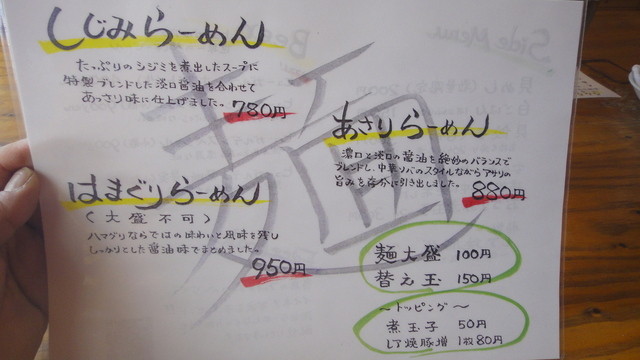 しじみらーめん
たっぷりのシジミを煮出したスープに
特製ブレンドした淡口醤油を合わせて
あっさり味に仕上げました。
780円
あさりらーめん
濃口と淡口の醤油を絶妙のバランスで
ブレンドし、中華ソバのスタイルながらアサリの
旨みを存分に引き出しました。
880円
はまぐりらーめん
(大盛不可)
ハマグリならではの味わいと風味を残し
しっかりとした醤油味でまとめました。
950円
麺大盛 100円
替え玉 150円
~トッピング~
煮玉子 50円
レア焼豚増 1枚80円
麺
Side Menu